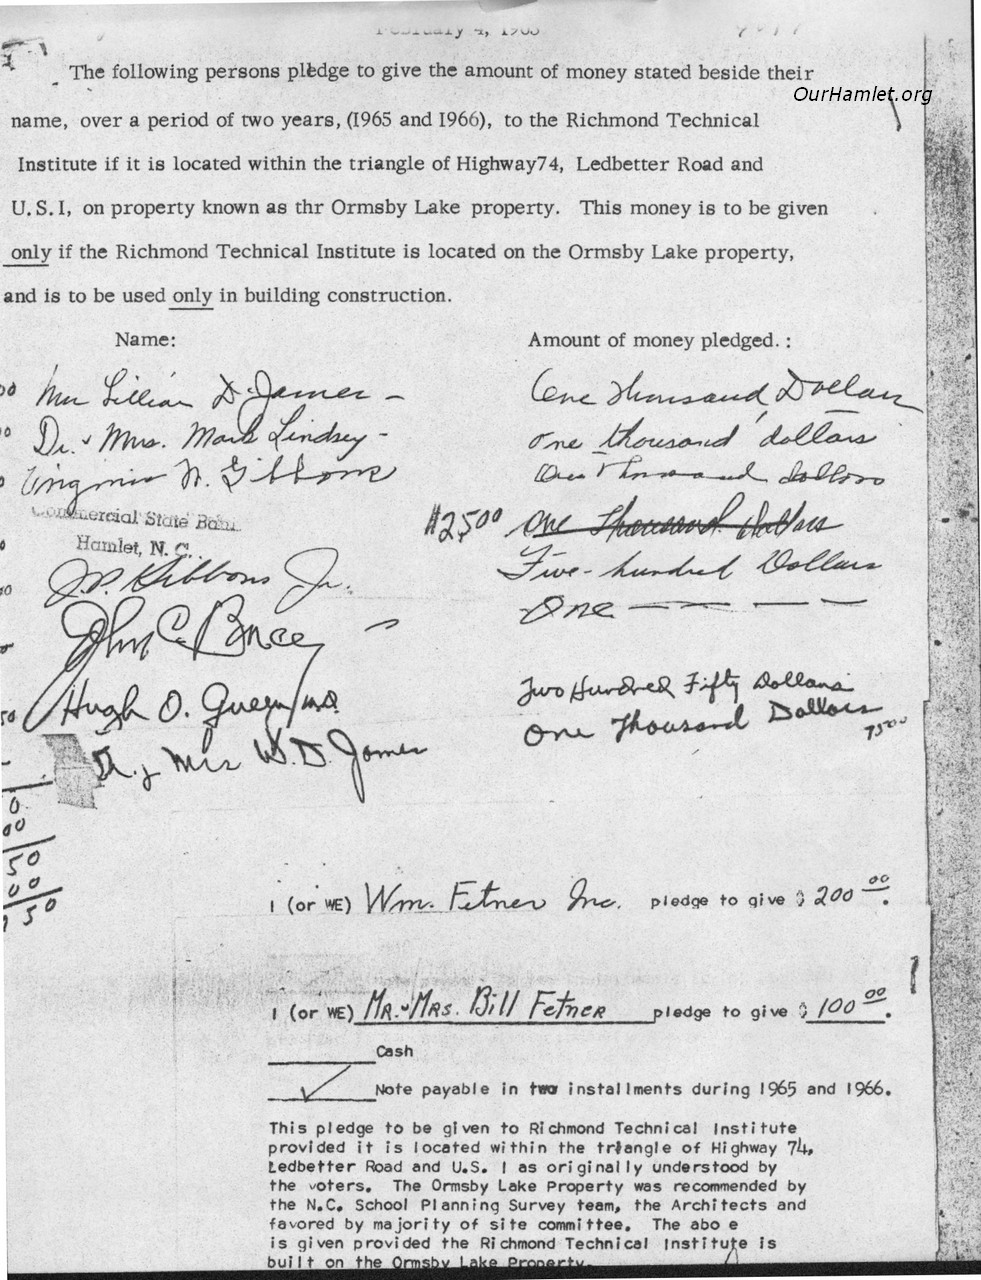 February 4, 1965
The following persons pledge to give the amount of money stated beside their
OurHamlet.org
name, over a period of two years, (1965 and 1966), to the Richmond Technical
Institute if it is located within the triangle of Highway74, Ledbetter Road and
U.S.I, on property known as thr Ormsby Lake property. This money is to be given
only if the Richmond Technical Institute is located on the Ormsby Lake property,
and is to be used only in building construction.
Name: Amount of money pledged. :
Mrs Lillian D. James - One Thousand Dollars
Dr. & Mrs. Mark Lindsey - one thousand dollars
Virginia N. Gibbons One Thousand dollars
Commercial State Bank $2500 One Thousand Dollars
Hamlet, N. C.
J.P. Gibbons Jr. Five-hundred Dollars
John C. One — — — —
Hugh O. Queen, md. Two Hundred Fifty Dollars
Dr. & Mrs W. D. James One Thousand Dollars
7500
0
00
50
00
50
I (or WE) Wm. Fetner Inc. pledge to give $ 200 00.
I (or WE) MR. & MRS. Bill Fetner pledge to give $ 100 00.
Cash
✓ Note payable in two installments during 1965 and 1966.
This pledge to be given to Richmond Technical Institute
provided it is located within the triangle of Highway 74,
Ledbetter Road and U.S. I as originally understood by
the voters. The Ormsby Lake Property was recommended by
the N.C. School Planning Survey team, the Architects and
favored by majority of site committee. The abo e
is given provided the Richmond Technical Institute is
built on the Ormsby Lake Property.